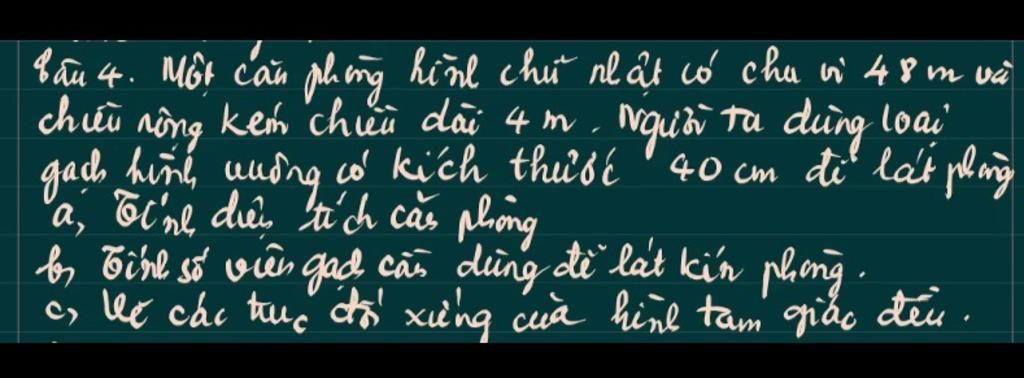 Câu 4. Một căn phòng hình chữ nhật có chu vi 48 m và
chiều rộng kém chiều dài 4 m. Người ta dùng loại
gạch hình vuông có kích thước 40 cm để lát phòng
a, Tính diện tích căn phòng
b, Tính số viên gạch cần dùng để lát kín phòng.
c, Vẽ các trục đối xứng của hình tam giác đều.